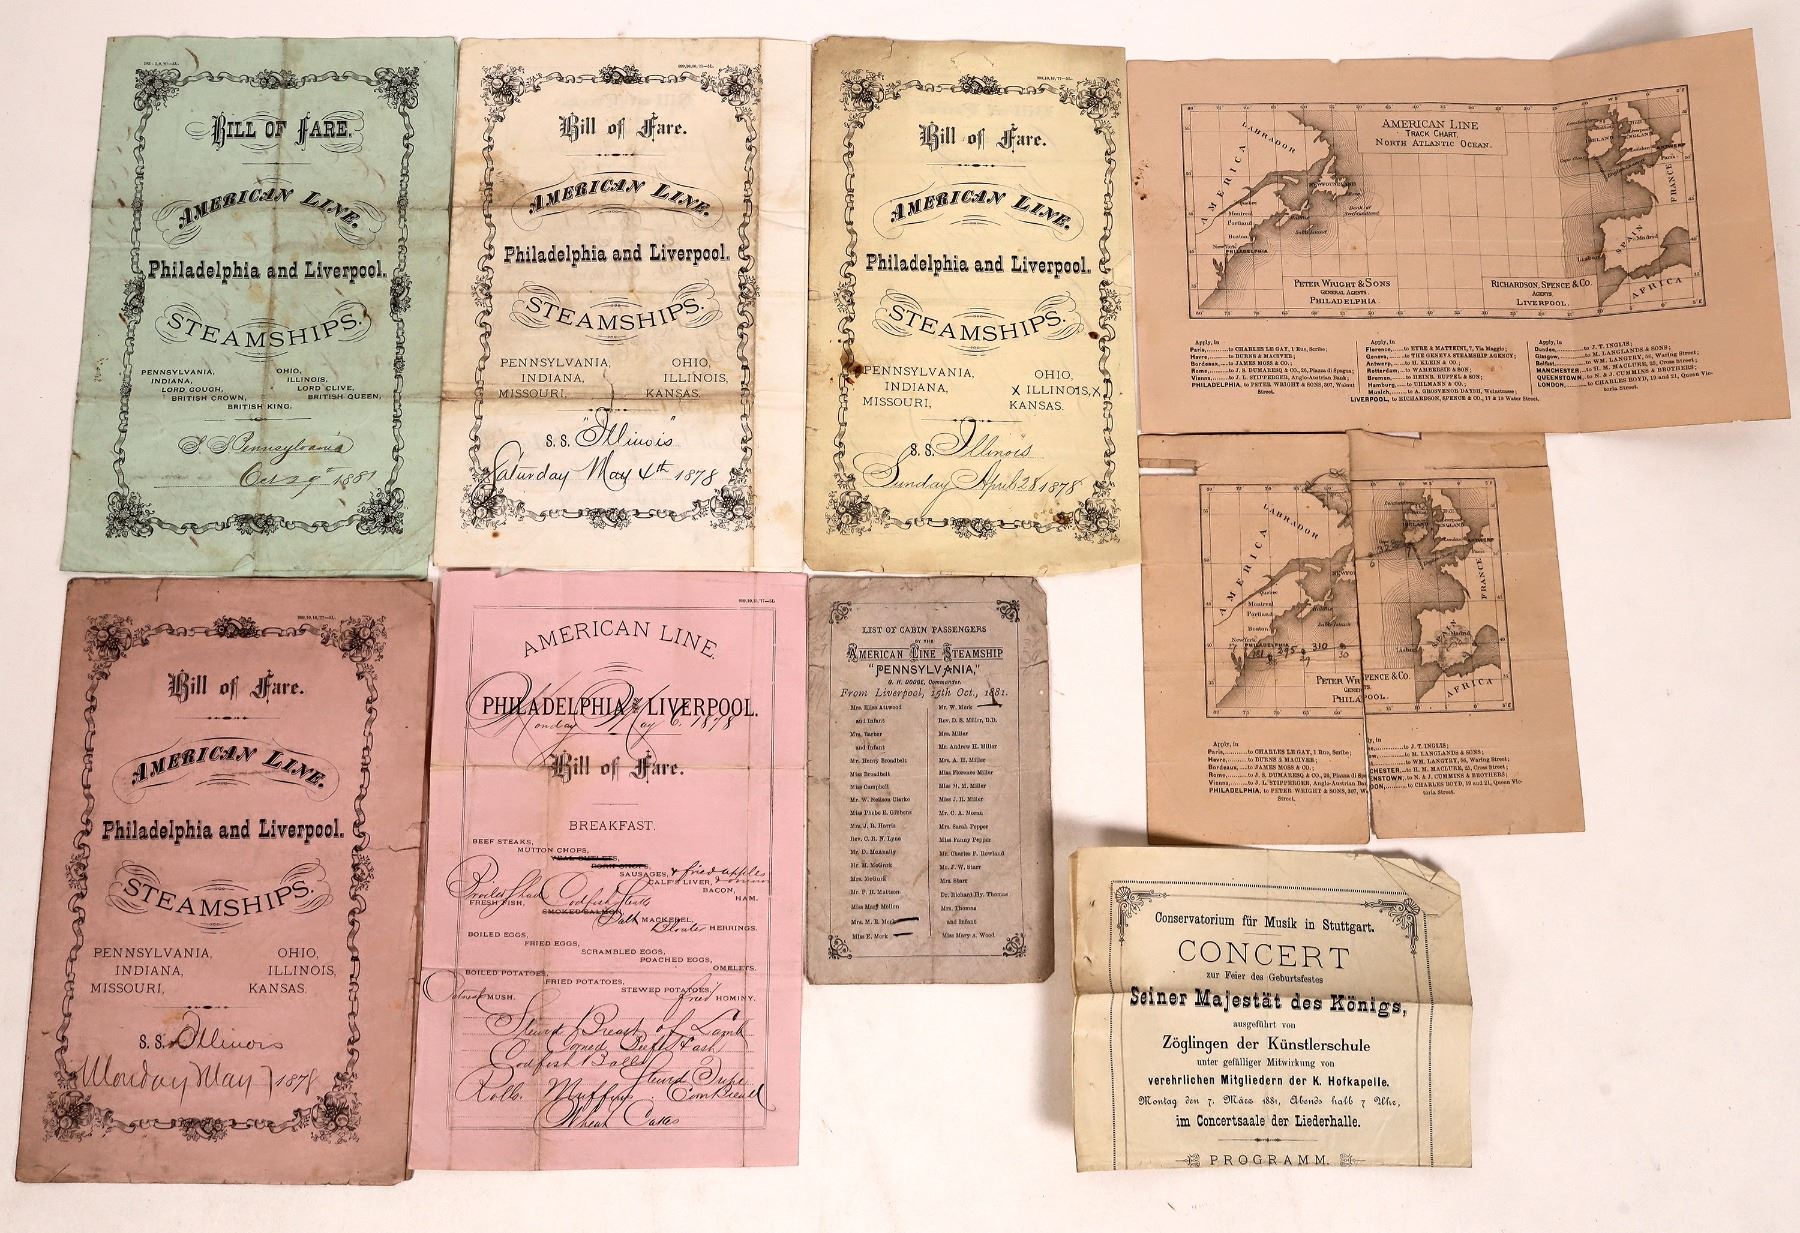 BILL OF FARE.
AMERICAN LINE.
Philadelphia and Liverpool.
STEAMSHIPS.
PENNSYLVANIA, OHIO,
INDIANA, ILLINOIS,
LORD GOUGH, LORD CLIVE,
BRITISH CROWN, BRITISH QUEEN,
BRITISH KING.
S. S. Pennsylvania
Oct 29th 1881
Bill of Fare.
AMERICAN LINE.
Philadelphia and Liverpool.
STEAMSHIPS.
PENNSYLVANIA, OHIO,
INDIANA, ILLINOIS,
MISSOURI, KANSAS.
S. S. "Illinois"
Saturday May 4th 1878
Bill of Fare.
AMERICAN LINE.
Philadelphia and Liverpool.
STEAMSHIPS.
PENNSYLVANIA, OHIO,
INDIANA, X ILLINOIS, X
MISSOURI, KANSAS.
S. S. "Illinois"
Sunday April 28 1878
AMERICAN LINE
TRACK CHART.
NORTH ATLANTIC OCEAN.
AMERICA
LABRADOR
NEWFOUNDLAND
Quebec
Montreal
Portland
Boston
New York
PHILADELPHIA
Halifax
Sable Island
IRELAND
ENGLAND
Liverpool
London
ANTWERP
Paris
FRANCE
SPAIN
Madrid
Lisbon
AFRICA
PETER WRIGHT & SONS
GENERAL AGENTS.
PHILADELPHIA.
RICHARDSON, SPENCE & CO.
AGENTS,
LIVERPOOL.
Apply, in
Paris, to CHARLES LE GAY, 1 Rue, Scribe;
Havre, to BURNS & MACIVER;
Bordeaux, to JAMES MOSS & CO.;
Rome, to J. S. DUMARESQ & CO., 20, Piazza di Spagna;
Vienna, to J. L. STIPPERGER, Anglo-Austrian Bank;
PHILADELPHIA, to PETER WRIGHT & SONS, 307, Walnut
Street.
Apply, in
Florence, to EYRE & MATTEINI, 7, Via Maggio;
Geneva, to THE GENEVA STEAMSHIP AGENCY;
Antwerp, to H. KLEIN & CO.
Rotterdam, to WAMBERSIE & SON;
Bremen, to HEINR. RUPPEL & SON;
Hamburg, to UHLMANN & CO.;
Munich, to A. GROSVENOR DANDE, Weinstrasse;
LIVERPOOL, to RICHARDSON, SPENCE & CO., 17 & 19 Water Street.
Apply, in
Dundee, to J. T. INGLIS;
Glasgow, to M. LANGLANDS & SONS;
Belfast, to WM. LANGTRY, 56, Waring Street;
MANCHESTER, to H. M. MACLURE, 25, Cross Street;
QUEENSTOWN, to N. & J. CUMMINS & BROTHERS;
LONDON, to CHARLES BOYD, 19 and 21, Queen Vic-
toria Street.
AMERICA
LABRADOR
Quebec
Montreal
Portland
Boston
New York
PHILADELPHIA
295
310
29
30
IRELAND
ENGLAND
London
ANTWERP
Paris
FRANCE
SPAIN
Madrid
Lisbon
AFRICA
PETER WR
PHILA
PENCE & CO.
POOL.
Apply, in
Paris, to CHARLES LE GAY, 1 Rue, Scribe;
Havre, to BURNS & MACIVER;
Bordeaux, to JAMES MOSS & CO.;
Rome, to J. S. DUMARESQ & CO., 20, Piazza di Sp
Vienna, to J. L. STIPPERGER, Anglo-Austrian Ban
PHILADELPHIA, to PETER WRIGHT & SONS, 307, W
Street.
ly, in
to J. T. INGLIS;
to M. LANGLANDS & SONS;
to WM. LANGTRY, 56, Waring Street;
CHESTER, to H. M. MACLURE, 25, Cross Street;
NSTOWN, to N. & J. CUMMINS & BROTHERS;
DON, to CHARLES BOYD, 19 and 21, Queen Vic-
toria Street.
Bill of Fare.
AMERICAN LINE.
Philadelphia and Liverpool.
STEAMSHIPS.
PENNSYLVANIA, OHIO,
INDIANA, ILLINOIS,
MISSOURI, KANSAS.
S. S. Illinois
Monday May 7 1878
AMERICAN LINE.
PHILADELPHIA AND LIVERPOOL.
Monday May 6. 1878
Bill of Fare.
BREAKFAST.
BEEF STEAKS,
MUTTON CHOPS,
VEAL CUTLETS,
PORK CHOPS,
SAUSAGES, & fried apples
CALF'S LIVER, & onions
BACON,
HAM.
Broiled Shad Codfish Steaks
FRESH FISH,
SMOKED SALMON,
Salt MACKEREL,
Bloater HERRINGS.
BOILED EGGS,
FRIED EGGS,
SCRAMBLED EGGS,
POACHED EGGS,
OMELETS.
BOILED POTATOES,
FRIED POTATOES,
STEWED POTATOES,
Oatmeal MUSH. fried HOMINY.
Stewed Breast of Lamb
Corned Beef Hash
Codfish Balls
Stewd Tripe
Rolls. Muffins. Corn Bread
Wheat Cakes
LIST OF CABIN PASSENGERS
BY THE
AMERICAN LINE STEAMSHIP
"PENNSYLVANIA,"
G. H. DODGE, Commander.
From Liverpool, 19th Oct., 1881.
Mrs. Eliza Attwood
and Infant
Mrs. Barber
and Infant
Mr. Henry Broadbelt
Miss Broadbelt
Miss Campbell
Mr. W. Neilson Clarke
Miss Phebe E. Gibbens
Mrs. J. B. Harris
Rev. C. R. N. Lyne
Mr. D. Mannally
Mr. M. McGurk
Mrs. McGurk
Mr. F. H. Mattson
Miss Mary Mellon
Mrs. M. E. Merk
Miss E. Merk
Mr. W. Merk
Rev. D. S. Miller, D.D.
Mrs. Miller
Mr. Andrew H. Miller
Mrs. A. H. Miller
Miss Florence Miller
Miss H. M. Miller
Miss J. H. Miller
Mr. C. A. Moran
Mrs. Sarah Pepper
Miss Fanny Pepper
Mr. Charles F. Rowland
Mr. J. W. Starr
Mrs. Starr
Dr. Richard Hy. Thomas
Mrs. Thomas
and Infant
Miss Mary A. Wood
Conservatorium für Musik in Stuttgart.
CONCERT
zur Feier des Geburtsfestes
Seiner Majestät des Königs,
ausgeführt von
Zöglingen der Künstlerschule
unter gefälliger Mitwirkung von
verehrlichen Mitgliedern der K. Hofkapelle.
Montag den 7. März 1881, Abends halb 7 Uhr,
im Concertsaale der Liederhalle.
PROGRAMM.